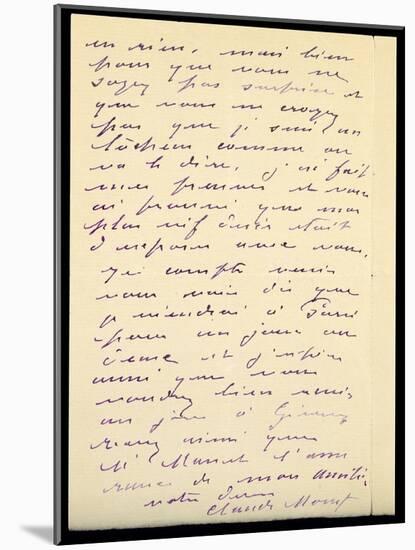 en rien, mais bien
pour que vous ne
soyez pas surprise et
que vous ne croyez
pas que je suis un
lâcheur comme on
va le dire, j'ai fait
mes preuves et vous
ai prouvé que mon
plus vif désir était
d'exposer avec vous.
je compte venir
vous voir dès que
je viendrai à Paris
pour un jour ou
deux et j'espère
aussi que vous
voudrez bien venir
un jour à Giverny
ainsi que
M. Manet l'assu
rance de mon amitié
votre dévoué
Claude Monet